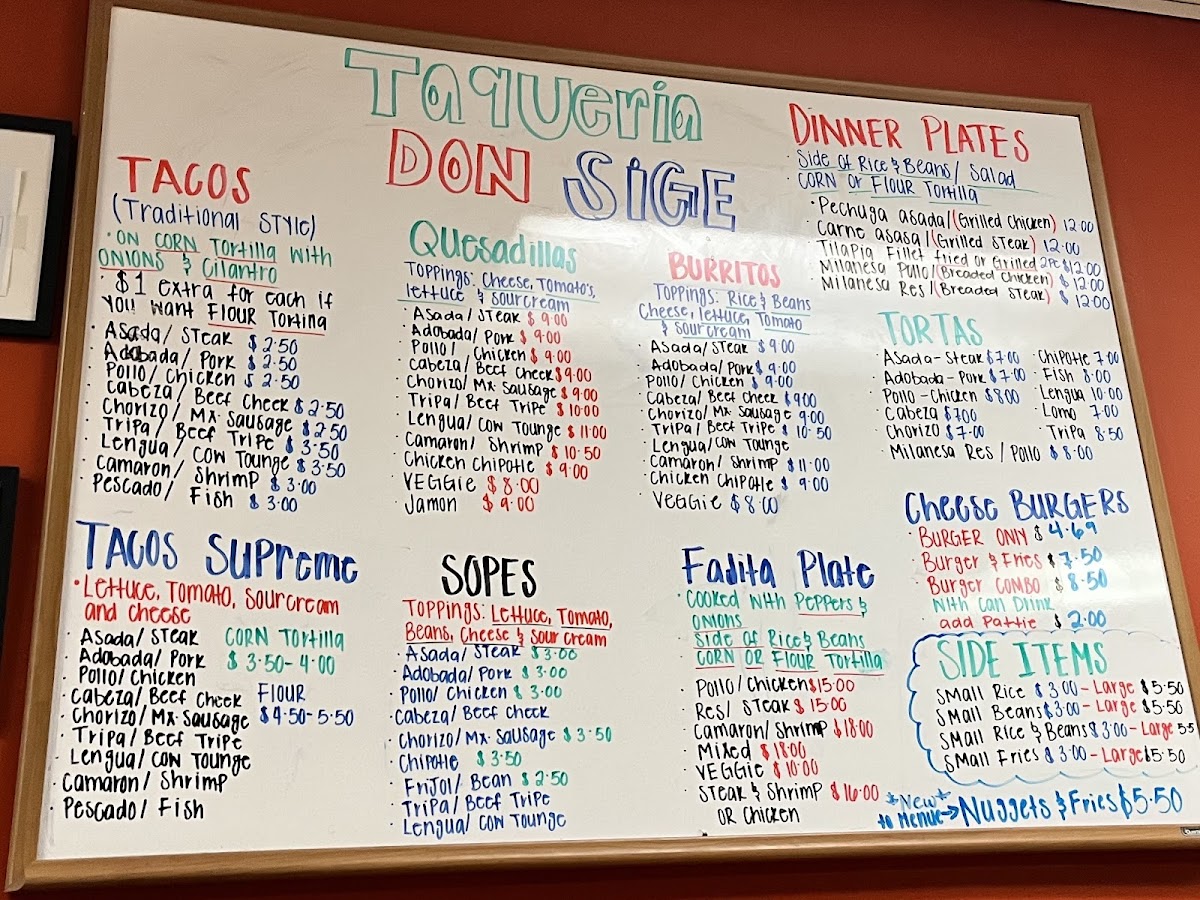 Taqueria
DON SIGE
TACOS
(Traditional STYLE)
• ON CORN TORTILLA WITH
ONIONS & Cilantro
• $1 extra for each if
YOU WANT FLOUR TORTILLA
• Asada/ STEAK $2.50
• Adobada/ PORK $2.50
• POLLO/ CHICKEN $2.50
• Cabeza/ BEEF CHEEK $2.50
• CHORIZO/ MX SAUSAGE $2.50
• TRIPA/ BEEF TRIPE $3.50
• LENGUA/ COW TOUNGE $3.50
• CAMARON/ SHRIMP $3.00
• PESCADO/ FISH $3.00
TACOS SUPREME
• LETTUCE, TOMATO, SOURCREAM
and cheese
• Asada/ STEAK CORN TORTILLA
• Adobada/ PORK $3.50-4.00
• POLLO/ CHICKEN
• Cabeza/ BEEF CHEEK FLOUR
• CHORIZO/ MX SAUSAGE $4.50-5.50
• TRIPA/ BEEF TRIPE
• LENGUA/ COW TOUNGE
• CAMARON/ SHRIMP
• PESCADO/ FISH
Quesadillas
TOPPINGS: Cheese, TOMATO'S,
lettuce & sourcream
• Asada/ STEAK $9.00
• Adobada/ PORK $9.00
• POLLO/ CHICKEN $9.00
• Cabeza/ BEEF CHEEK $9.00
• CHORIZO/ MX SAUSAGE $9.00
• TRIPA/ BEEF TRIPE $10.00
• LENGUA/ COW TOUNGE $11.00
• Camaron/ SHRIMP $10.50
• CHICKEN CHIPOTLE $9.00
• VEGGIE $8.00
• Jamon $9.00
SOPES
TOPPINGS: LETTUCE, TOMATO,
Beans, Cheese & Sour cream
• Asada/ STEAK $3.00
• Adobada/ PORK $3.00
• POLLO/ CHICKEN $3.00
• Cabeza/ BEEF CHEEK
• CHORIZO/ MX SAUSAGE $3.50
• CHIPOTLE $3.50
• FRIJOL/ BEAN $2.50
• TRIPA/ BEEF TRIPE
• LENGUA/ COW TOUNGE
BURRITOS
TOPPINGS: RICE & BEANS
Cheese, lettuce, TOMATO
& SOURCREAM
• Asada/ STEAK $9.00
• Adobada/ PORK $9.00
• POLLO/ CHICKEN $9.00
• Cabeza/ BEEF CHEEK $9.00
• CHORIZO/ MX SAUSAGE 9.00
• TRIPA/ BEEF TRIPE $10.50
• LENGUA/ COW TOUNGE
• CAMARON/ SHRIMP $11.00
• CHICKEN CHIPOTLE $9.00
• VEGGIE $8.00
Fajita Plate
• COOKED WITH PEPPERS &
ONIONS
SIDE OF RICE & BEANS
CORN OR FLOUR TORTILLA
• POLLO/ CHICKEN $15.00
• RES/ STEAK $15.00
• CAMARON/ SHRIMP $18.00
• MIXED $18.00
• VEGGIE $10.00
• STEAK & SHRIMP $16.00
OR CHICKEN
DINNER PLATES
• Side of Rice & Beans/ Salad
• CORN or FLOUR Tortilla
• Pechuga asada/(Grilled Chicken) 12.00
• Carne asasa/(Grilled Steak) 12.00
• Tilapia Fillet fried or Grilled 2PC $12.00
• Milanesa Pollo/(Breaded Chicken) $12.00
• Milanesa Res/(Breaded Steak) $12.00
TORTAS
• Asada-Steak $7.00
• Adobada-Pork $7.00
• Pollo-Chicken $8.00
• Cabeza $7.00
• Chorizo $7.00
• Milanesa Res / Pollo $8.00
• Chipotle 7.00
• Fish 8.00
• Lengua 10.00
• Lomo 7.00
• Tripa 8.50
Cheese BURGERS
• BURGER ONLY $4.69
• Burger & Fries $7.50
• Burger COMBO $8.50
With Can Drink
• add Pattie $2.00
SIDE ITEMS
• SMALL RICE $3.00-Large $5.50
• SMALL Beans $3.00-Large $5.50
• SMALL RICE & Beans $3.00-Large 5.5
• SMALL FRIES $3.00-Large $5.50
*New*
to Menue→ Nuggets & Fries $5.50